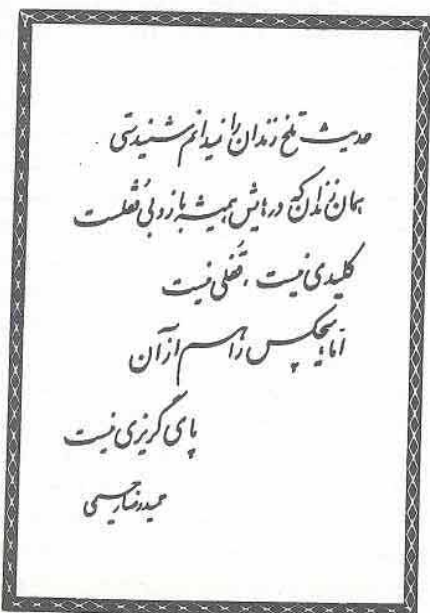 حدیث تلخ زندان را نمیدانم شنیدستی
همان زندان که درهایش همیشه باز و بی قُفلست
کلیدی نیست، قُفلی نیست
امّا هیچکس را هم از آن
پای گریزی نیست
حمیدرضا رحیمی